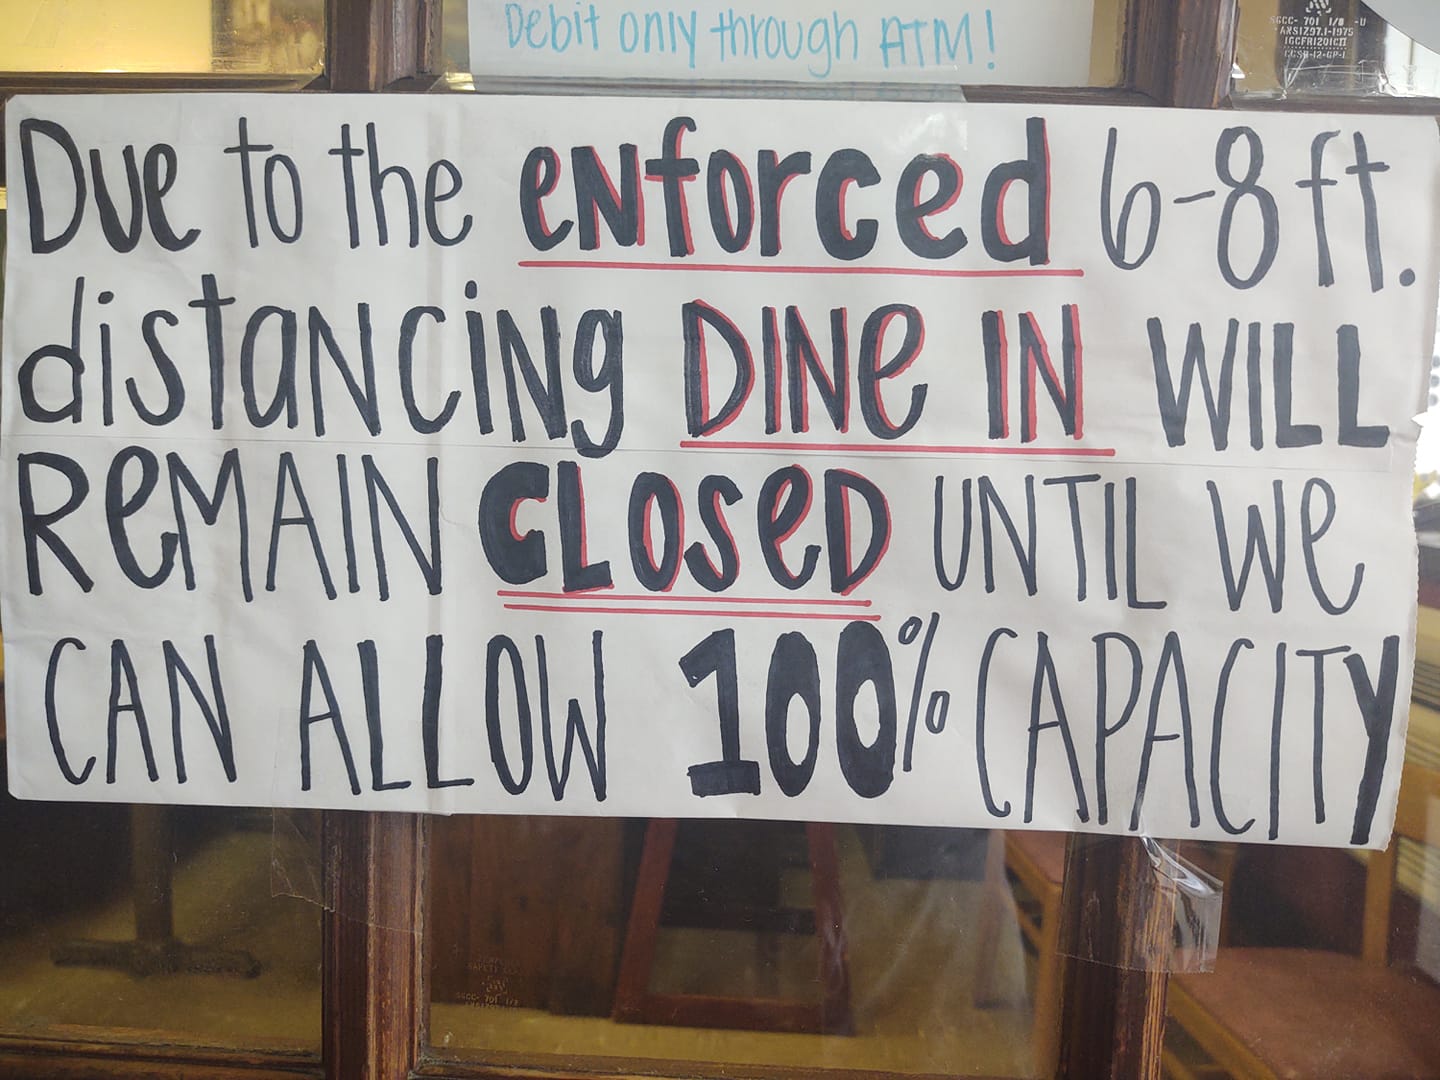 Debit only through ATM!
SGCC- 701 1/8 -U
ANSIZ97.1-1975
16CFR1201CII
Due to the enforced 6-8 ft.
distancing DINe IN WILL
ReMAIN CLOSeD UNTIL We
CAN ALLOW 100% CAPACITY
SGCC- 701 1/8